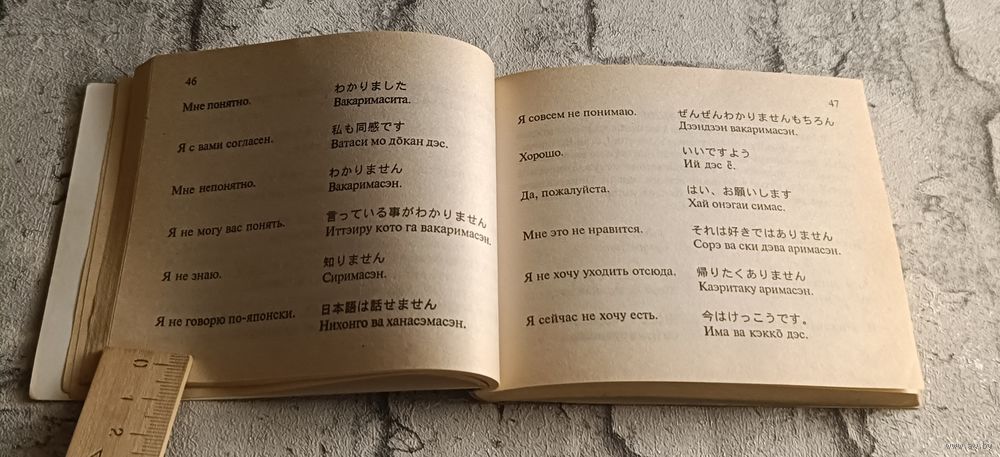 46
Мне понятно.
わかりました
Вакаримасита.
Я с вами согласен.
私も同感です
Ватаси мо до̄кан дэс.
Мне непонятно.
わかりません
Вакаримасэн.
Я не могу вас понять.
言っている事がわかりません
Иттэиру кото га вакаримасэн.
Я не знаю.
知りません
Сиримасэн.
Я не говорю по-японски.
日本語は話せません
Нихонго ва ханасэмасэн.
0
1
2
47
Я совсем не понимаю.
ぜんぜんわかりませんもちろん
Дзэндзэн вакаримасэн.
Хорошо.
いいですよう
Ий дэс ё̄.
Да, пожалуйста.
はい、お願いします
Хай онэгаи симас.
Мне это не нравится.
それは好きではありません
Сорэ ва ски дэва аримасэн.
Я не хочу уходить отсюда.
帰りたくありません
Каэритаку аримасэн.
Я сейчас не хочу есть.
今はけっこうです。
Има ва кэкко̄ дэс.
www.ay.by